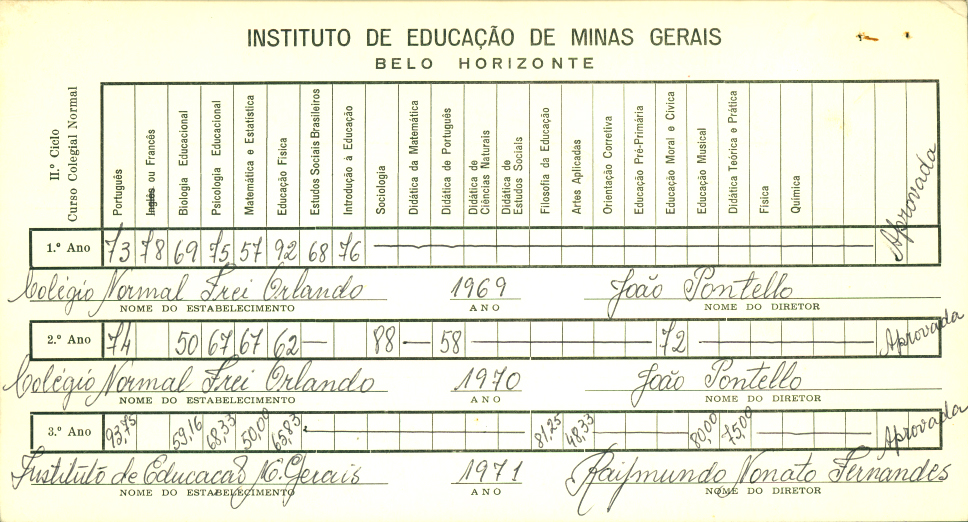 INSTITUTO DE EDUCAÇÃO DE MINAS GERAIS
BELO HORIZONTE
II.º Ciclo
Curso Colegial Normal
Português
Inglês ou Francês
Biologia Educacional
Psicologia Educacional
Matemática e Estatística
Educação Física
Estudos Sociais Brasileiros
Introdução à Educação
Sociologia
Didática da Matemática
Didática de Português
Didática de Ciências Naturais
Didática de Estudos Sociais
Filosofia da Educação
Artes Aplicadas
Orientação Corretiva
Educação Pré-Primária
Educação Moral e Cívica
Educação Musical
Didática Teórica e Prática
Física
Química
1.º Ano 73 78 69 75 57 92 68 76 Aprovada
Colégio Normal Frei Orlando 1969 João Pontello
NOME DO ESTABELECIMENTO ANO NOME DO DIRETOR
2.º Ano 74 50 67 67 62 — 88 — 58 — 72 — Aprovada
Colégio Normal Frei Orlando 1970 João Pontello
NOME DO ESTABELECIMENTO ANO NOME DO DIRETOR
3.º Ano 93,75 59,16 68,33 50,00 65,83 81,25 48,33 80,00 75,00 Aprovada
Instituto de Educação M. Gerais 1971 Raymundo Nonato Fernandes
NOME DO ESTABELECIMENTO ANO NOME DO DIRETOR